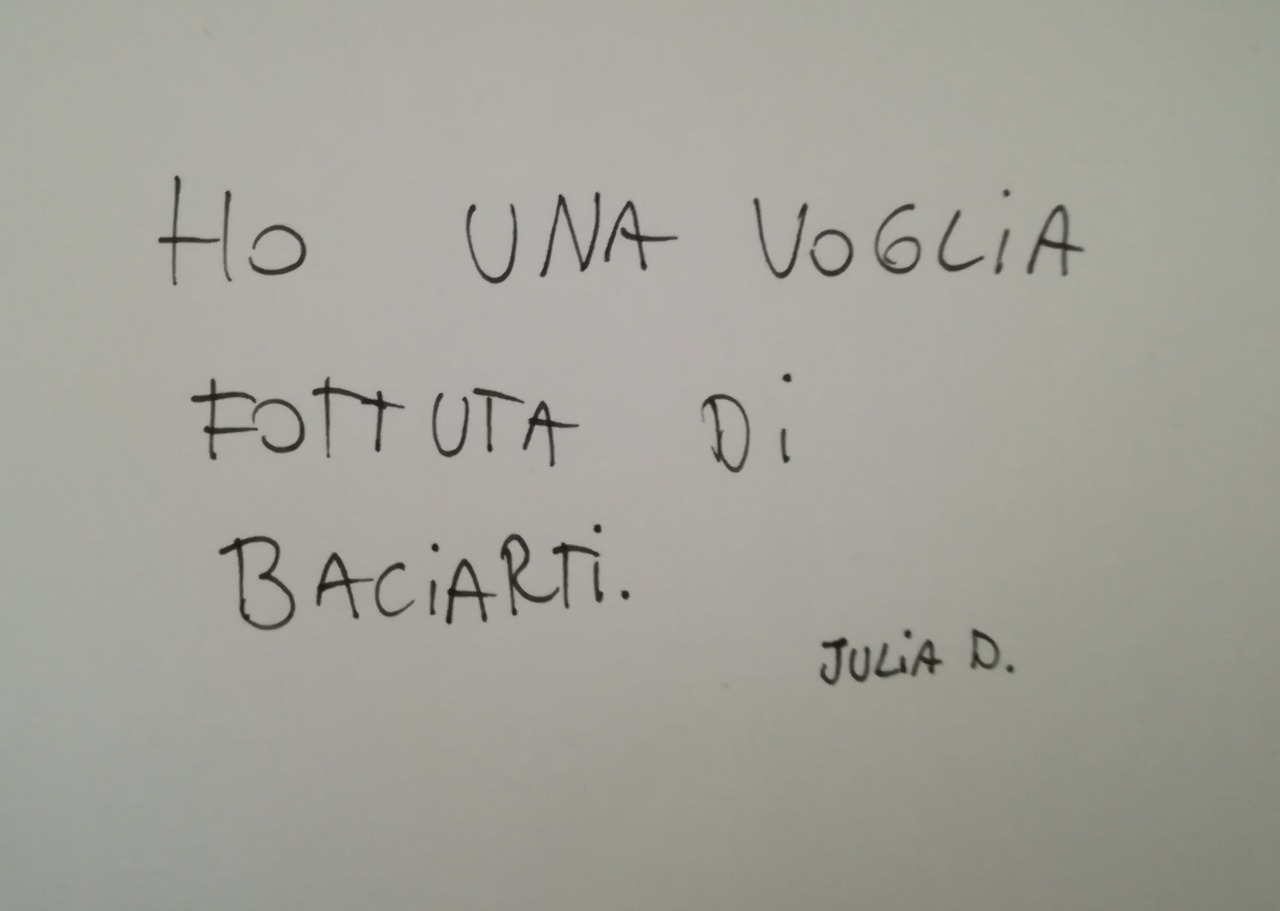 HO UNA VOGLIA
FOTTUTA Di
BACiARTi.
JULiA D.